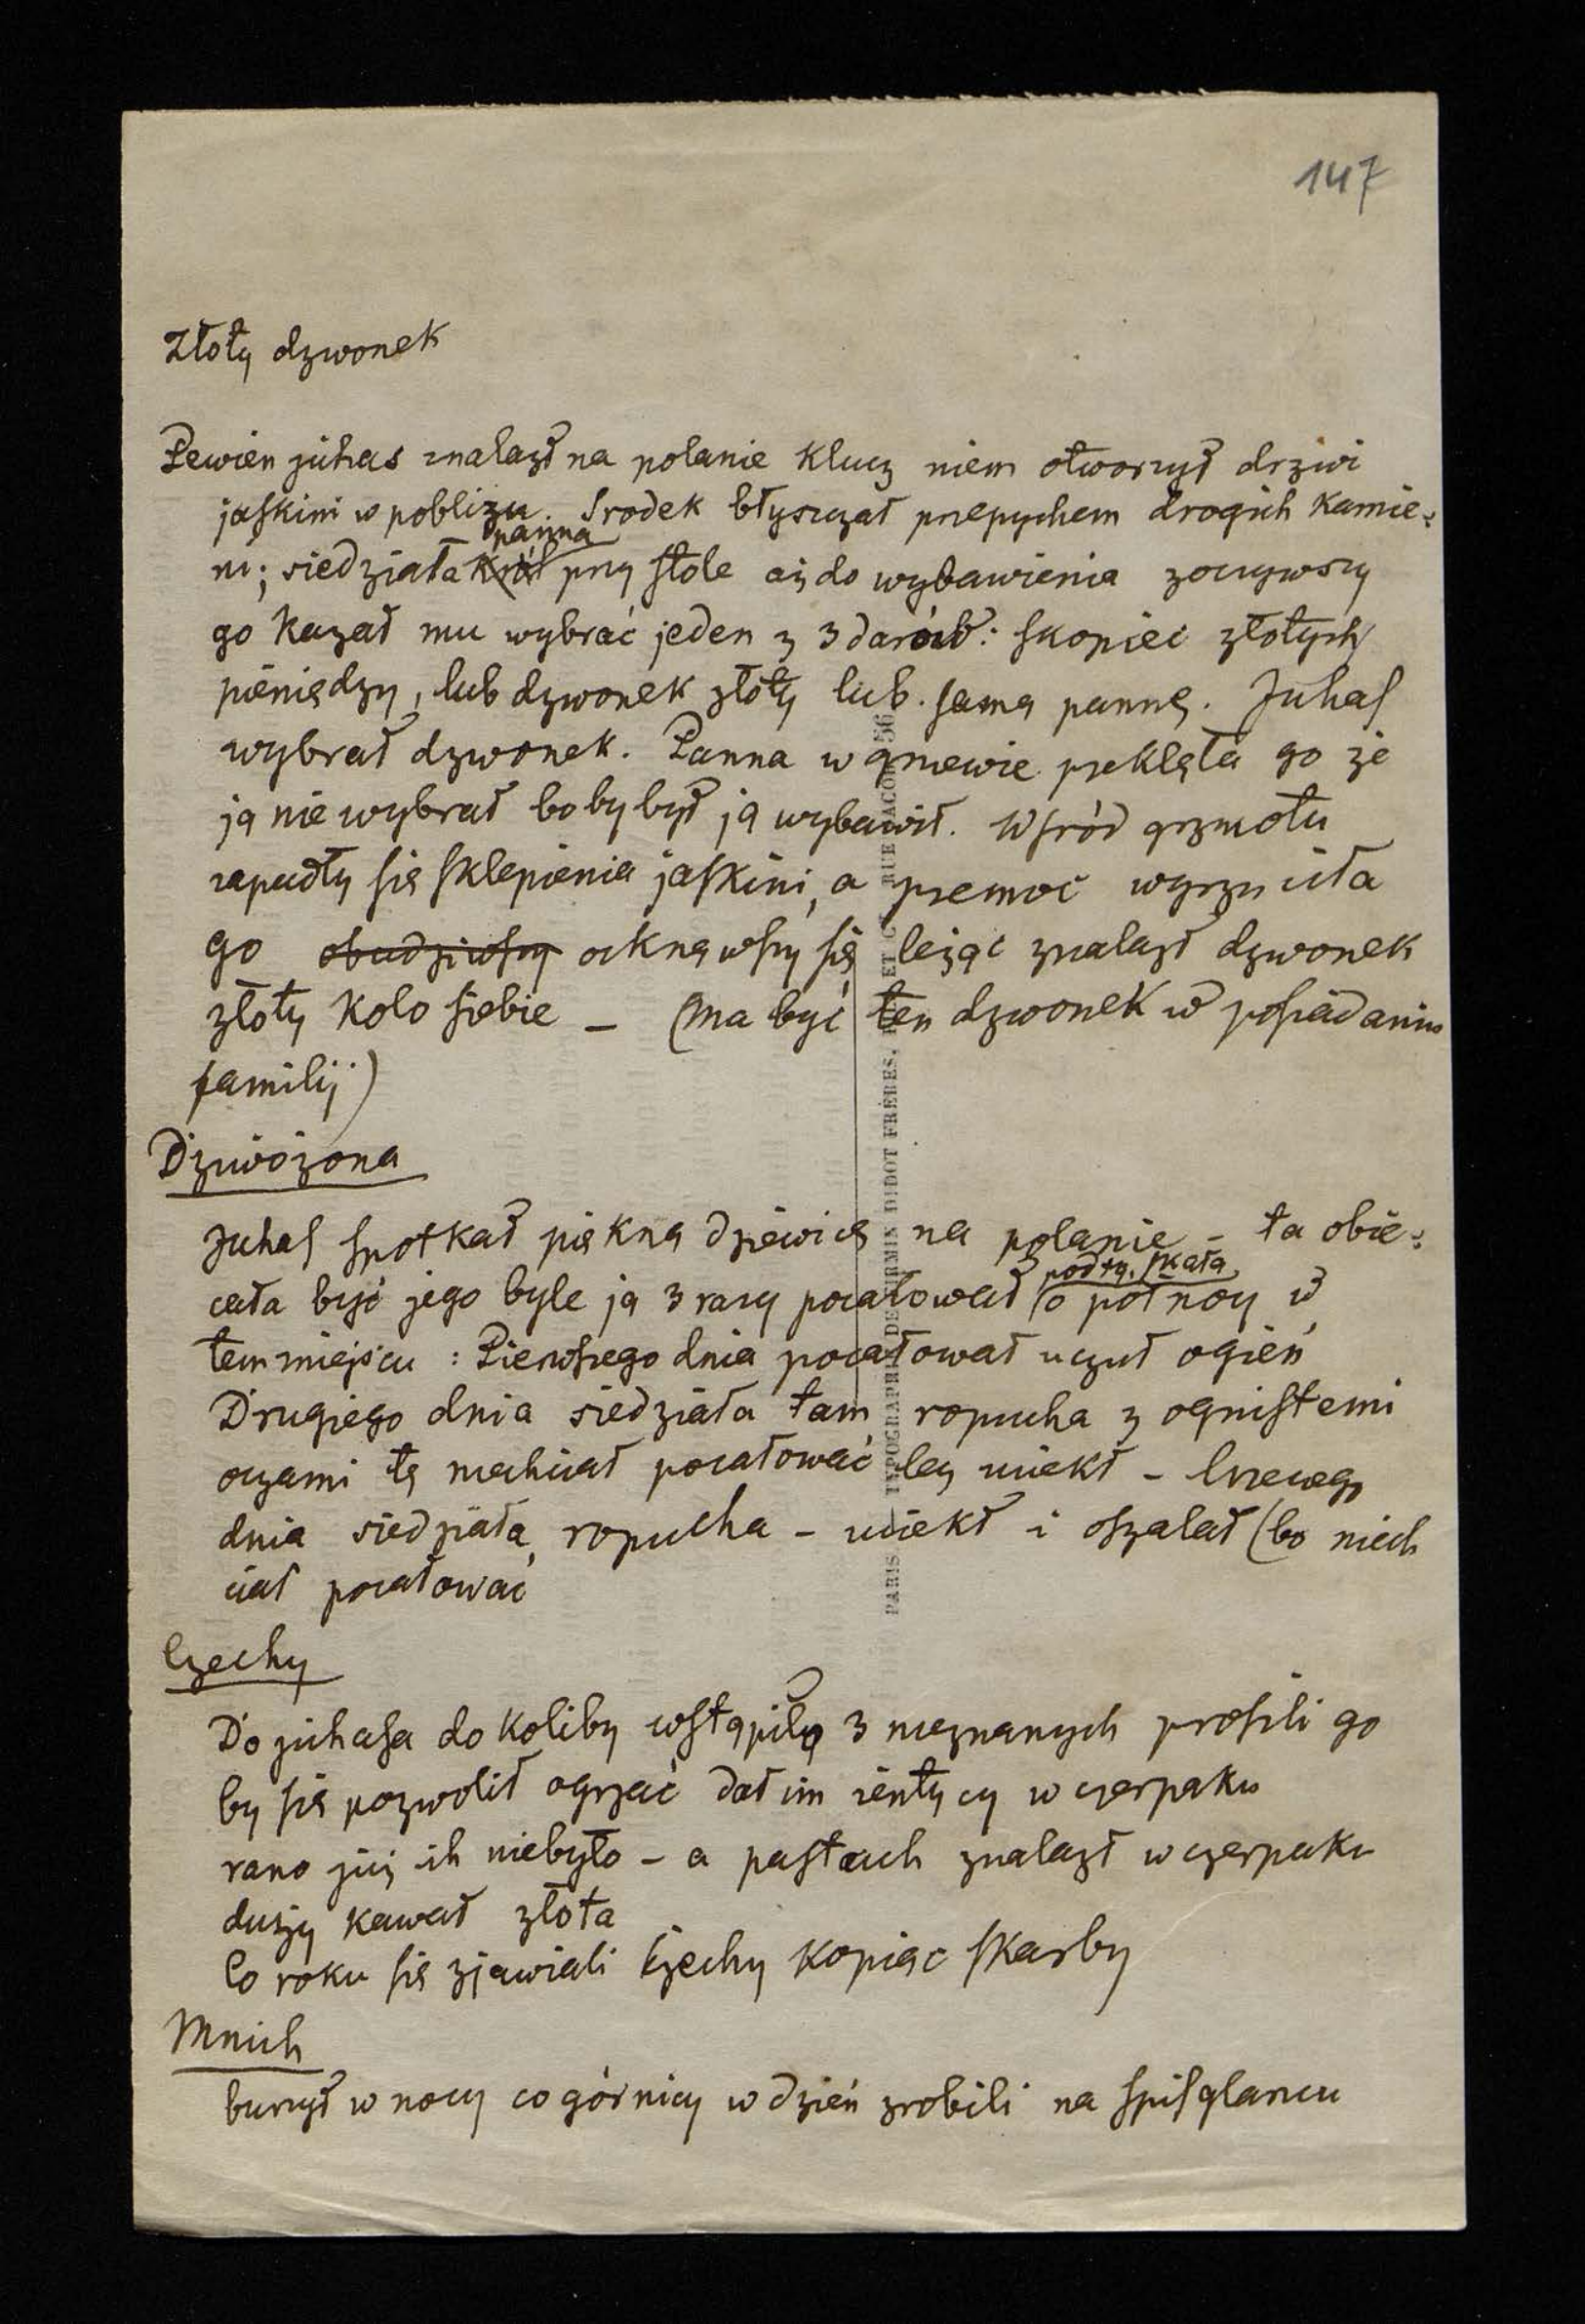 147
Złoty dzwonek
Pewien juhas znalazł na polanie klucz niem otworzył drzwi
jaskini w pobliżu. Srodek błyszczał przepychem drogich kamie=
ni; siedziała król panna przy stole aż do wybawienia zoczywszy
go kazał mu wybrać jeden z 3 darów: skopiec złotych
pieniędzy, lub dzwonek złoty lub samą pannę. Juhas
wybrał dzwonek. Panna w gniewie przeklęła go że
ją nie wybrał bo by był ją wybawił. Wśród grzmotu
zapadły się sklepienia jaskini, a przemoc wyrzuciła
go obudziwszy ocknąwszy się leżąc znalazł dzwonek
złoty koło siebie – (ma być ten dzwonek w posiadaniu
familij)
Dziwożona
Juhas spotkał piękną dziewicę na polanie – ta obie=
cała być jego byle ją 3 razy pocałował pod tą skałą o północy w
tem miejscu: Pierwszego dnia pocałował uczuł ogień
Drugiego dnia siedziała tam ropucha z ognistemi
oczami tę niechciał pocałować lecz uciekł – trzeciego
dnia siedziała ropucha – uciekł i oszalał (bo niech
ciał pocałować
Czechy
Do juhasa do koliby wstąpiło 3 nieznanych prosili go
by się pozwolił ogrzać dał im żentycy w czerpaku
rano już ich niebyło – a pastuch znalazł w czerpaku
duży kawał złota
Co roku się zjawiali Czechy kopiąc skarby
Mnich
burzył w nocy co górnicy w dzień zrobili na spisglancu
PARIS TYPOGRAPHIE DE FIRMIN DIDOT FRÈRES, FILS ET Cie, RUE JACOB, 56